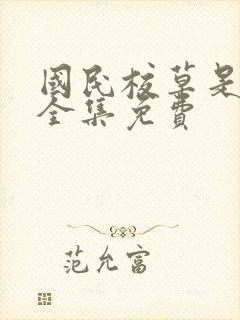 國民校草是
全集免費
范允富